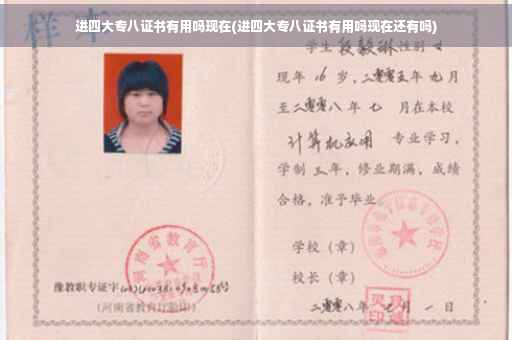 进四大专八证书有用吗现在(进四大专八证书有用吗现在还有吗)
样本
学生段毅琳性别女
现年 16 岁，二零零五年 九月
至二零零八年 七 月在本校
计算机应用 专业学习，
学制 三 年，修业期满，成绩
合格，准予毕业
学校（章）
校长（章）
二零零八年 七 月 一 日
河南省教育厅
豫教职专证字
（河南省教育厅验印）